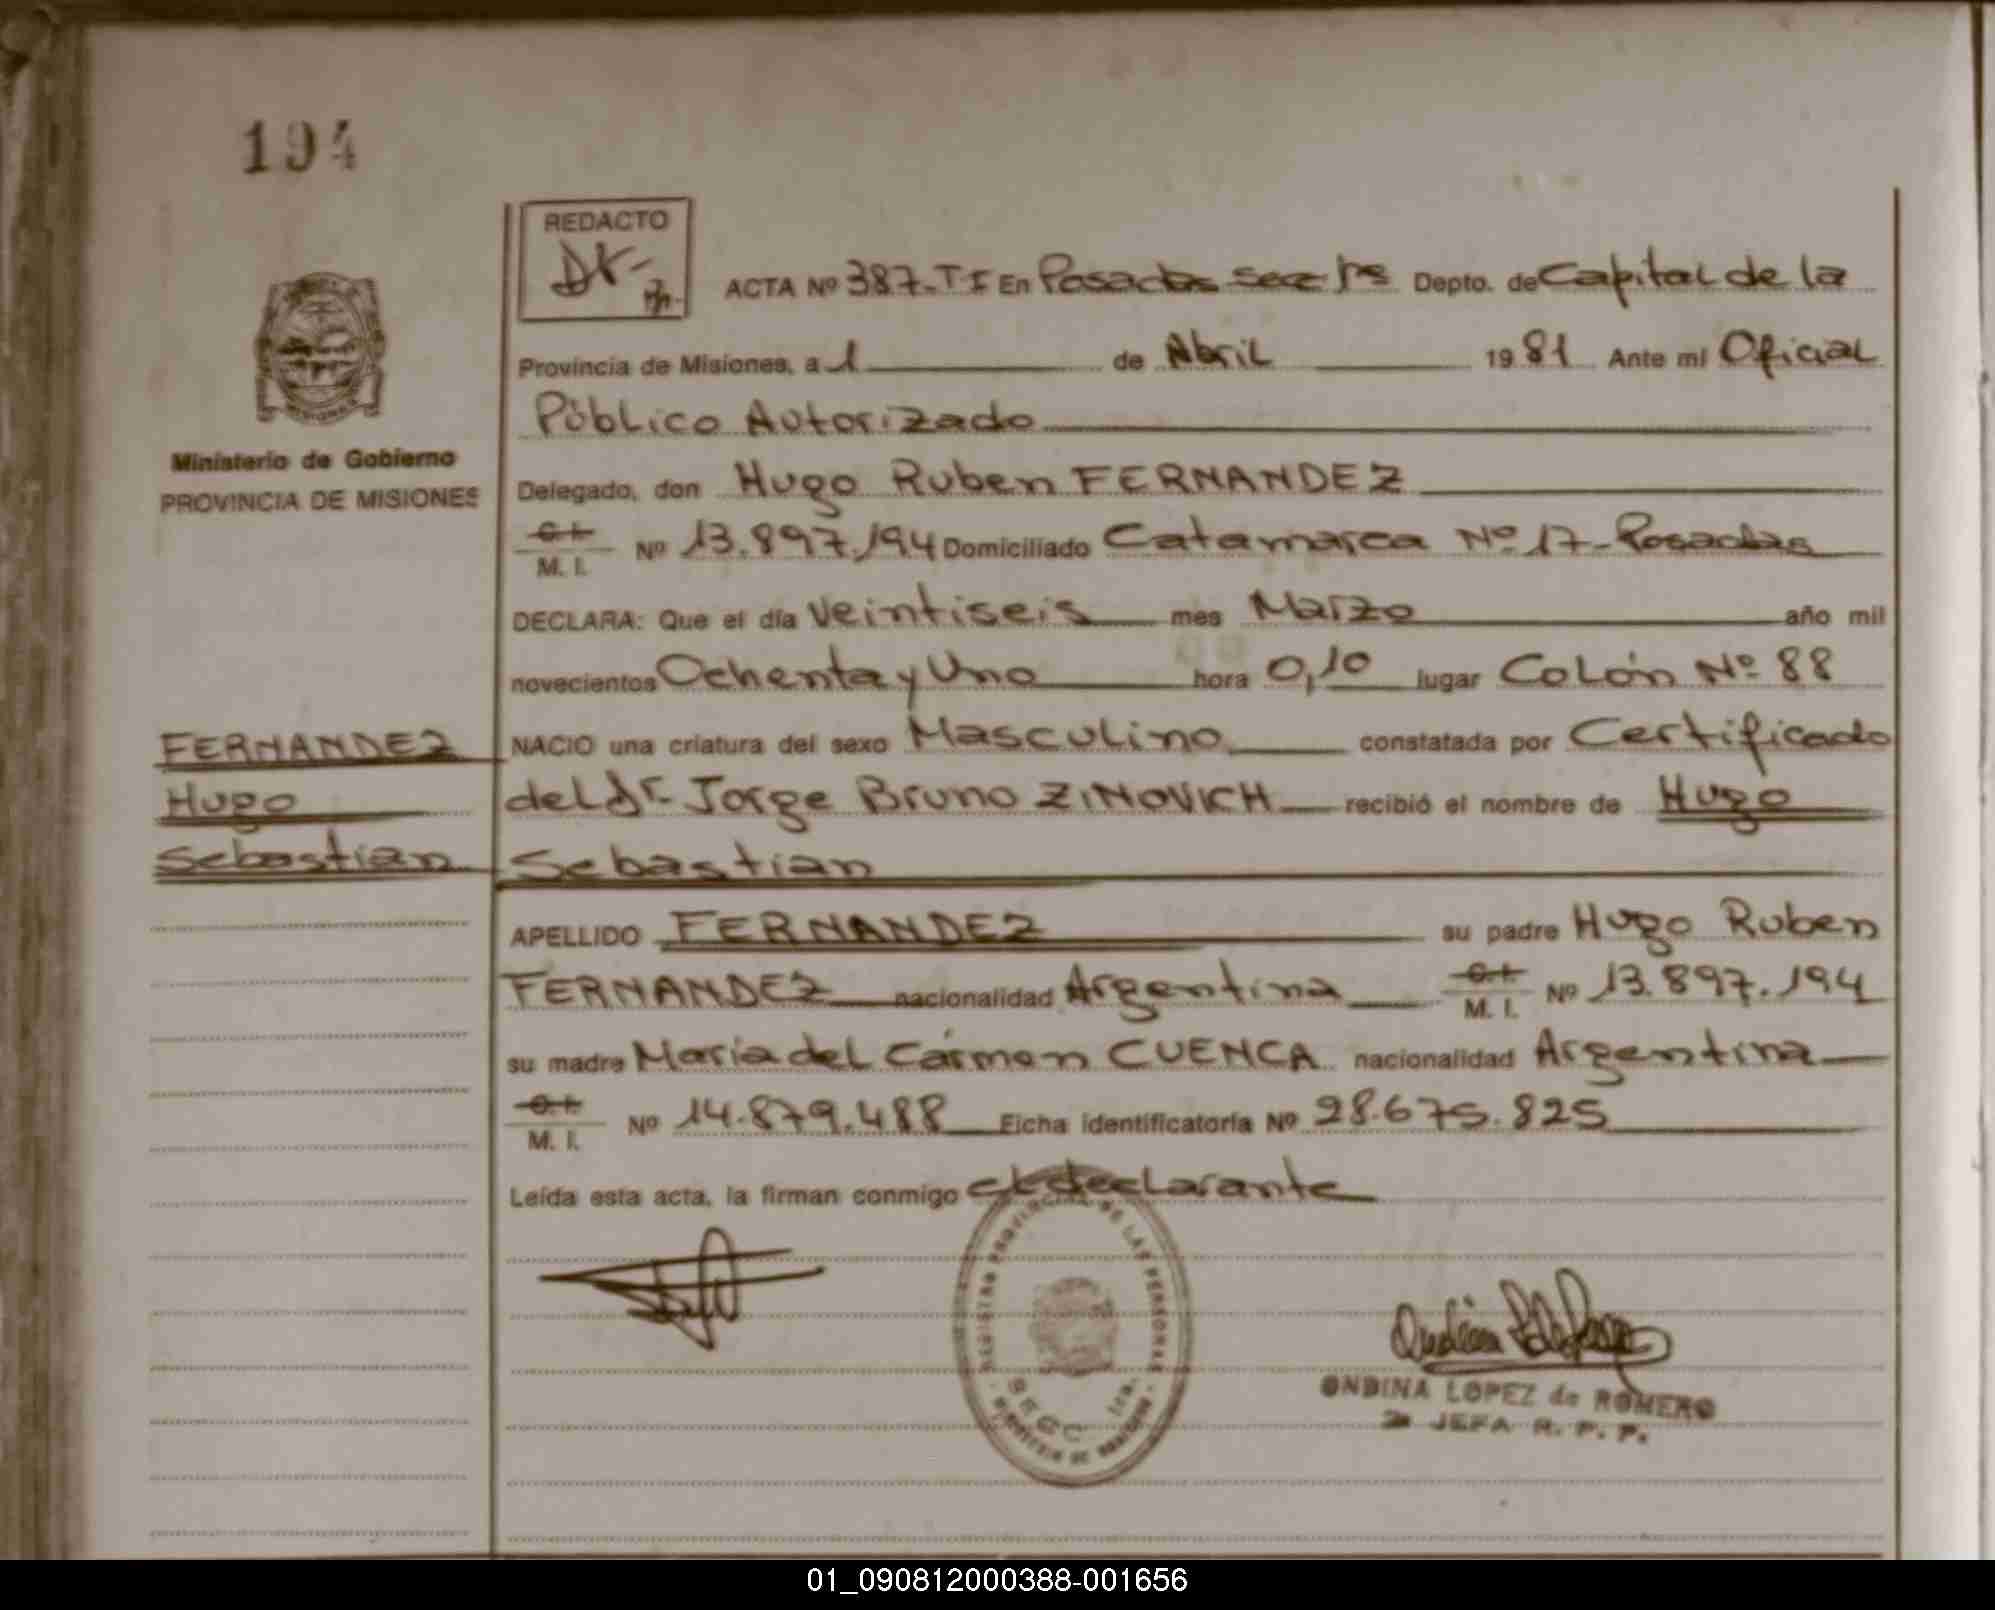 194
REDACTO
ACTA Nº 387-TI En Posadas Sec 1ra Depto. de Capital de la
Provincia de Misiones, a 1 de Abril 1981 Ante mi Oficial
Público Autorizado
Ministerio de Gobierno
PROVINCIA DE MISIONES
Delegado, don Hugo Ruben FERNANDEZ
C.I.
M. I. Nº 13.897.194 Domiciliado Catamarca Nº 17-Posadas
DECLARA: Que el día Veintiseis mes Marzo año mil
novecientos Ochenta y Uno hora 0,10 lugar Colón Nº 88
NACIO una criatura del sexo Masculino constatada por Certificado
del Dr. Jorge Bruno ZINOVICH recibió el nombre de Hugo
Sebastian
FERNANDEZ
Hugo
Sebastian
APELLIDO FERNANDEZ su padre Hugo Ruben
FERNANDEZ nacionalidad Argentina C.I.
M. I. Nº 13.897.194
su madre María del Cármen CUENCA nacionalidad Argentina
C.I.
M. I. Nº 14.879.488 Ficha identificatoria Nº 28.675.825
Leída esta acta, la firman conmigo el declarante
REGISTRO PROVINCIAL DE LAS PERSONAS
ONDINA LOPEZ de ROMERO
JEFA R. P. P.
01_090812000388-001656